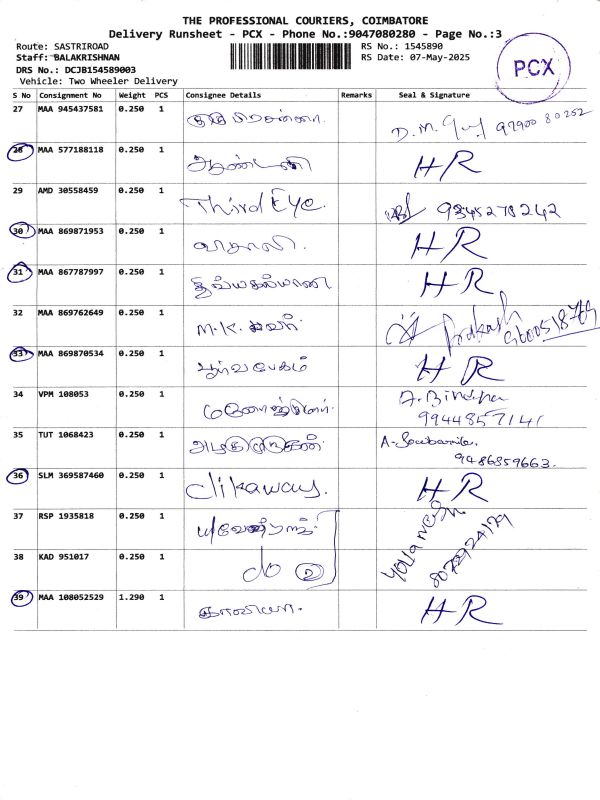 THE PROFESSIONAL COURIERS, COIMBATORE
Delivery Runsheet - PCX - Phone No.:9047080280 - Page No.:3
Route: SASTRIROAD
RS No.: 1545890
Staff: BALAKRISHNAN
RS Date: 07-May-2025
DRS No.: DCJB154589003
Vehicle: Two Wheeler Delivery
PCX
S No Consignment No Weight PCS Consignee Details Remarks Seal & Signature
27 MAA 945437581 0.250 1 D.M. 97900 80252
28 MAA 577188118 0.250 1 HR
29 AMD 30558459 0.250 1 Third Eye. 9345278242
30 MAA 869871953 0.250 1 விசாலி. HR
31 MAA 867787997 0.250 1 திவ்யகல்யாணி HR
32 MAA 869762649 0.250 1 M.K. Prakash
33 MAA 869870534 0.250 1 HR
34 VPM 108053 0.250 1 9944857141
35 TUT 1068423 0.250 1 9486859663.
36 SLM 369587460 0.250 1 clikaways. HR
37 RSP 1935818 0.250 1
38 KAD 951017 0.250 1 do 2 8072924179
39 MAA 108052529 1.290 1 HR